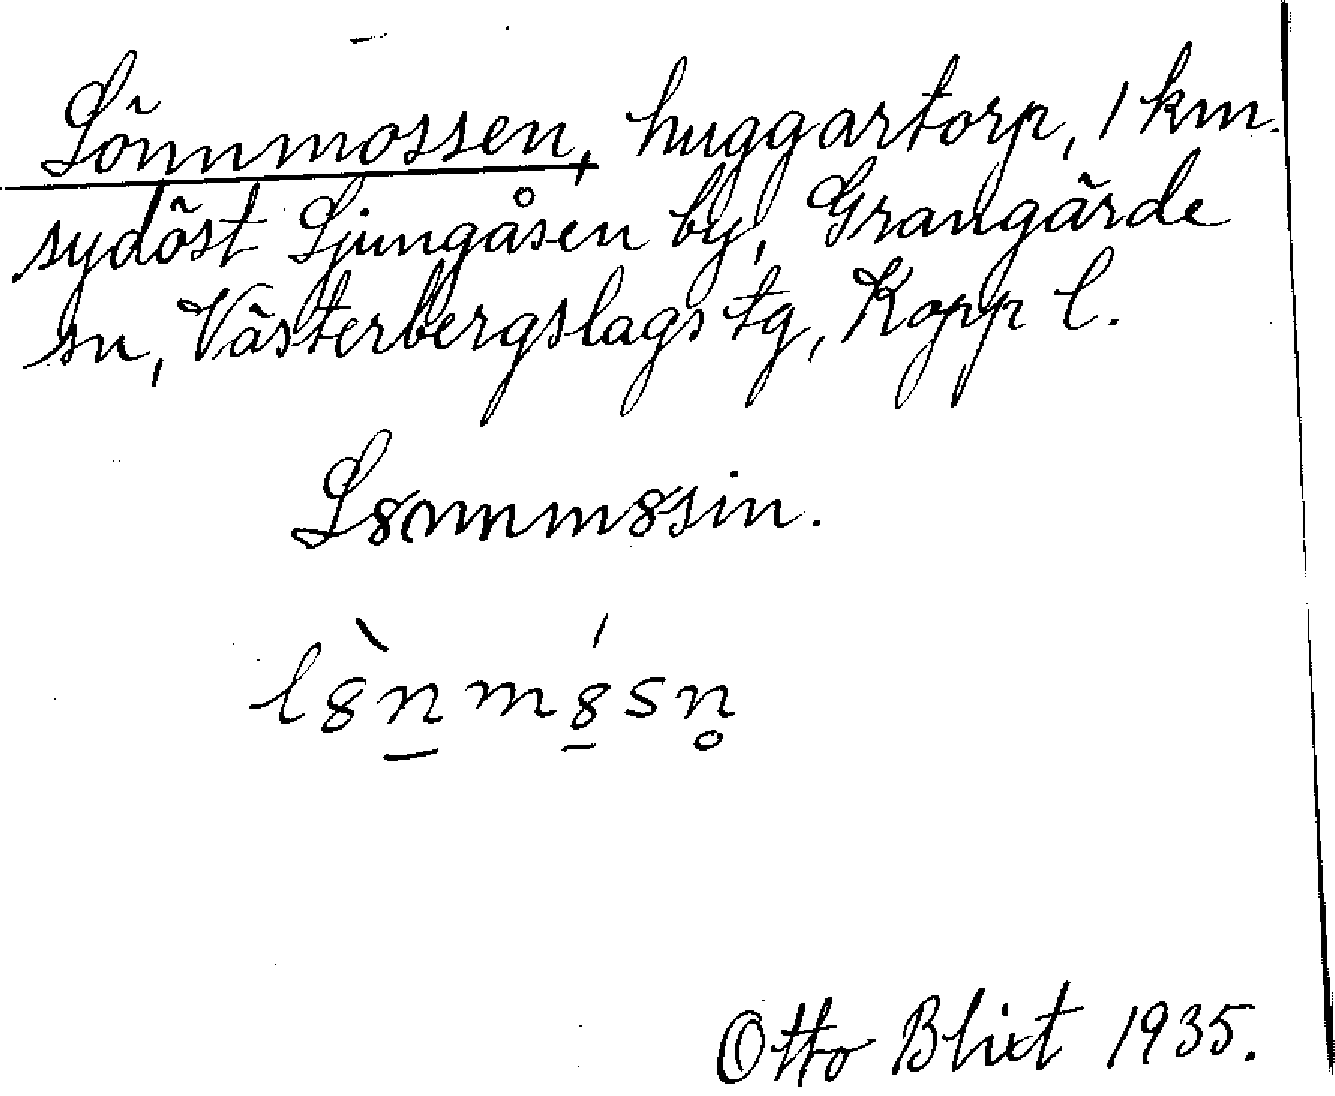 Lönnmossen, huggartorp, 1 km.
sydöst Ljungåsen by, Grangärde
sn, Västerbergslags tg, Kopp l.
L8nnm8sin.
l8̀n̲m8̲́sn̥
Otto Blixt 1935.